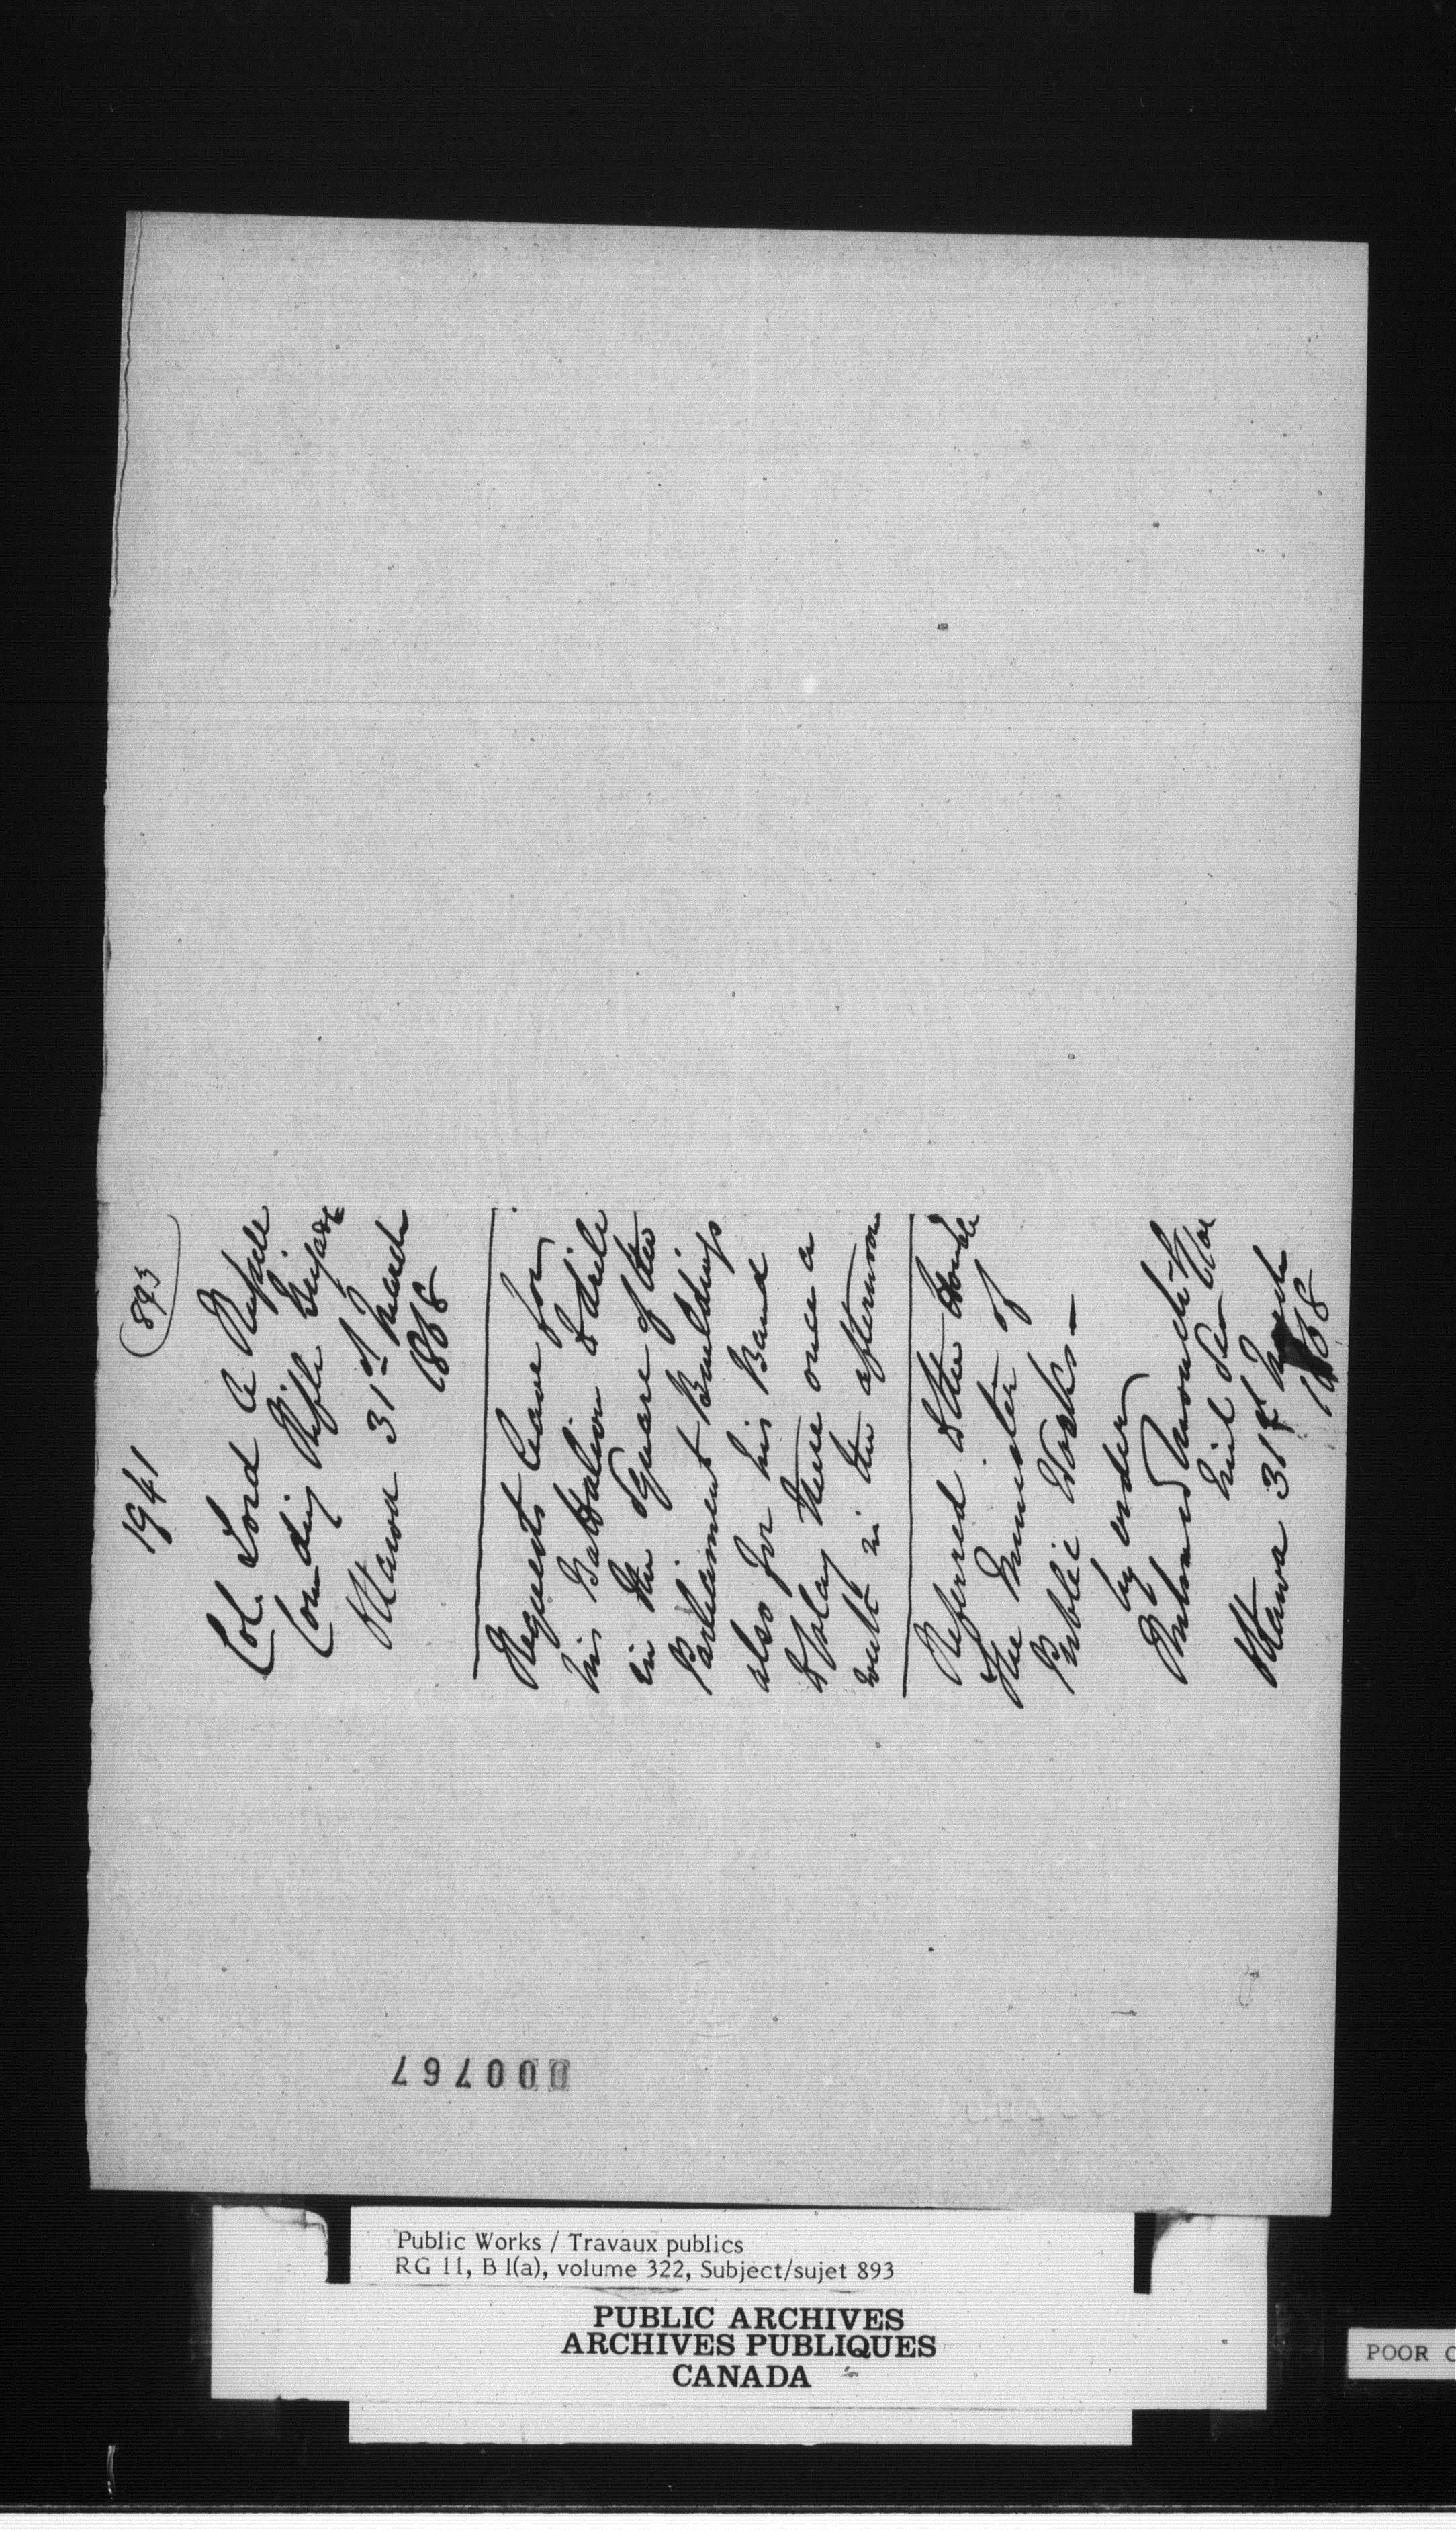 1941
893
Col. Lord A Russell
Comding Rifle Brigade
Ottawa 31st March
1868
Requests leave for
his Battalion to drill
in the Square of the
Parliament Buildings
also for his Band
to play there once a
week in the afternoon
Referred to the Honble
the Minister of
Public Works—
by order
Ottawa 31st March
1868
000767
Public Works / Travaux publics
RG 11, B 1(a), volume 322, Subject/sujet 893
PUBLIC ARCHIVES
ARCHIVES PUBLIQUES
CANADA
POOR